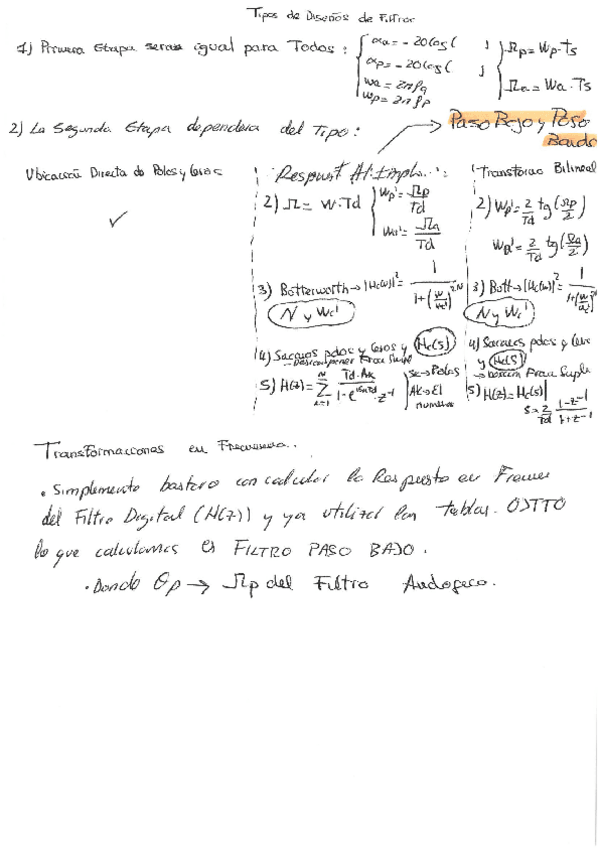 Tipos de Diseños de Filtros
1) Primera Etapa seran igual para Todos: αa = -20log( )
αp = -20log( )
wa = 2πfa
wp = 2πfp
Ωp = Wp·Ts
Ωa = Wa·Ts
2) La Segunda Etapa dependera del Tipo: → Paso Bajo y Paso
Banda
Ubicación Directa de Polos y Ceros
✓
Respuest Al Impls...:
2) Ω = W·Td
Wp' = Ωp/Td
Wa' = Ωa/Td
3) Butterworth → |Hc(w)|² = 1/(1+(w/wc')^2N)
N y Wc'
4) Sacamos polos y Ceros y Hc(s)
→ Descomponer Frac Simple
5) H(z) = Σ Td·Ak / 1-e^(skTd)·z⁻¹
sk → Polos
Ak → El
numerador
Transformac Bilineal
2) Wp' = 2/Td tg(Ωp/2)
Wa' = 2/Td tg(Ωa/2)
3) Butt → |Hc(w)|² = 1/(1+(w/wc')^2N)
N y Wc'
4) Sacamos polos y Cero
y Hc(s)
→ Frac Simple
5) H(z) = Hc(s)|
s = 2/Td 1-z⁻¹/1+z⁻¹
Transformaciones en Frecuencia..
• Simplemente bastara con calcular la Respuesta en Frecuen
del Filtro Digital (H(z)) y ya utilizar las tablas. OJITO
lo que calculamos es FILTRO PASO BAJO.
• Donde θp → Ωp del Filtro Analogico.